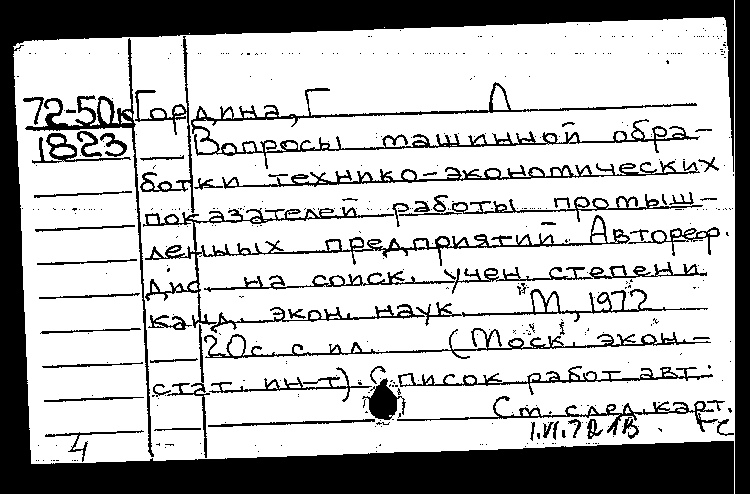 72-50к Гордина, Г Л
1823 Вопросы машинной обра-
ботки технико-экономических
показателей работы промыш-
ленных предприятий. Автореф.
дис. на соиск. учен. степени
канд. экон. наук. М., 1972
20с. с ил. (Моск. экон.-
стат. ин-т). Список работ авт.:
См. след. карт.
4